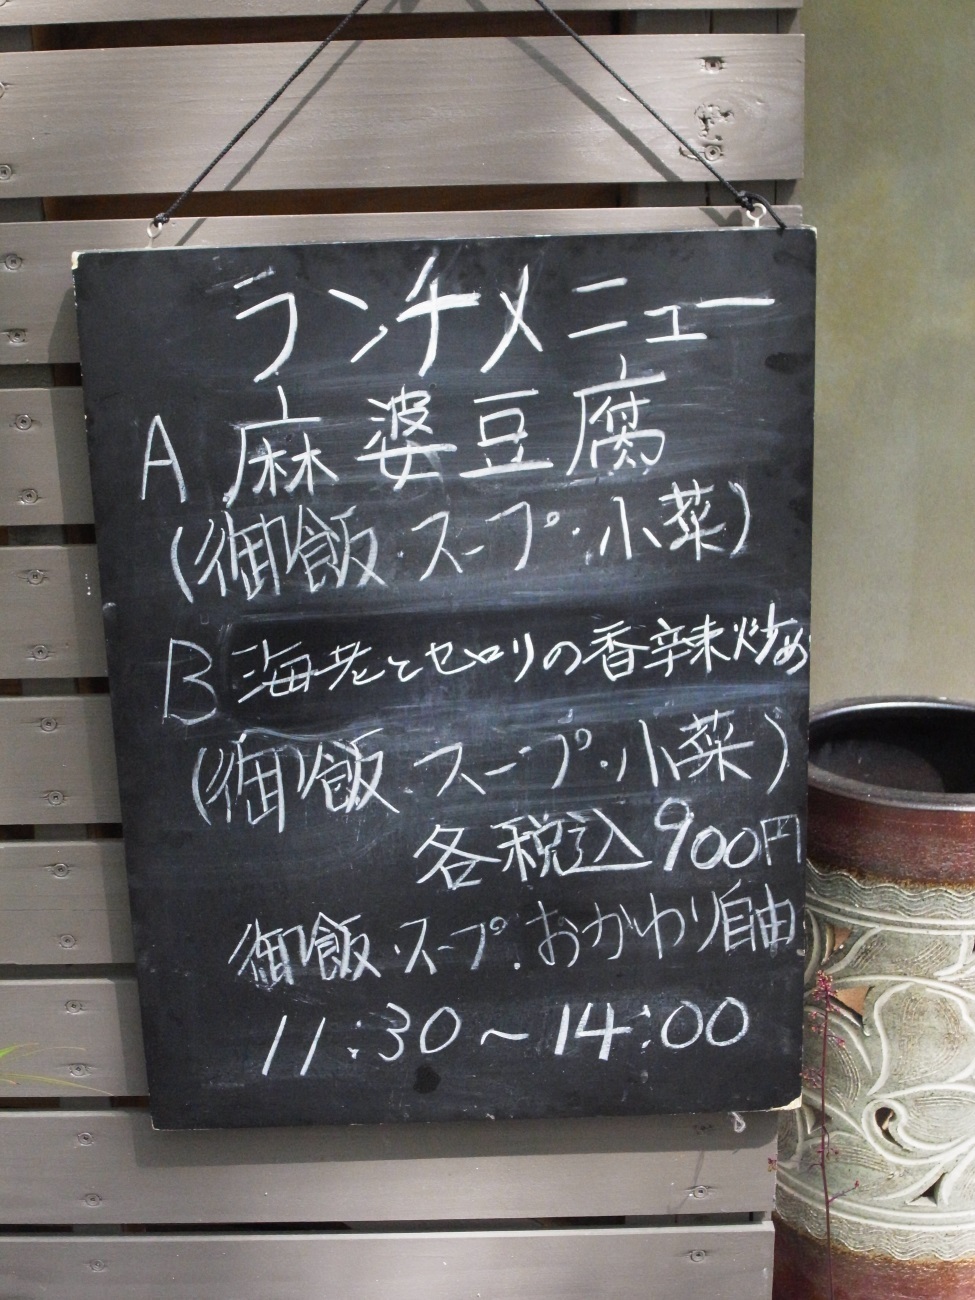 ランチメニュー
A 麻婆豆腐
(御飯・スープ・小菜)
B 海老とセロリの香辛辣炒め
(御飯 スープ・小菜)
各税込900円
御飯・スープ・おかわり自由
11:30～14:00